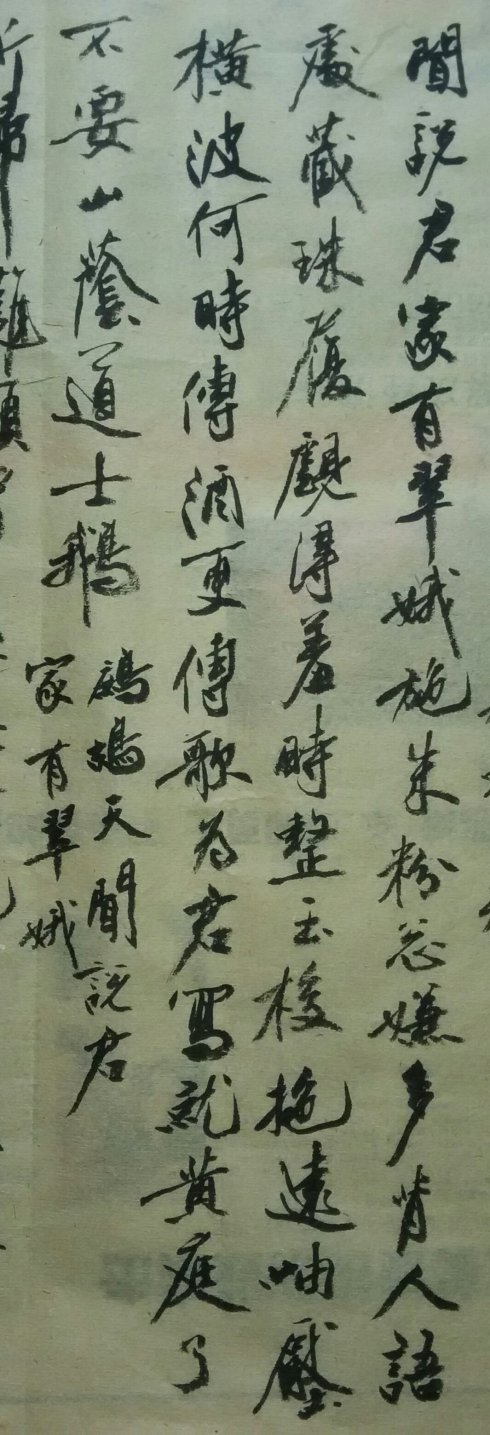 聞說君家有翠娥施朱粉忩嫌多背人語
處藏珠履覷得羞時整玉梭拖遠岫壓
橫波何時傳酒更傳歌為君寫就黄庭了
不要山蔭道士鵝
鷓鴣天聞說君
家有翠娥